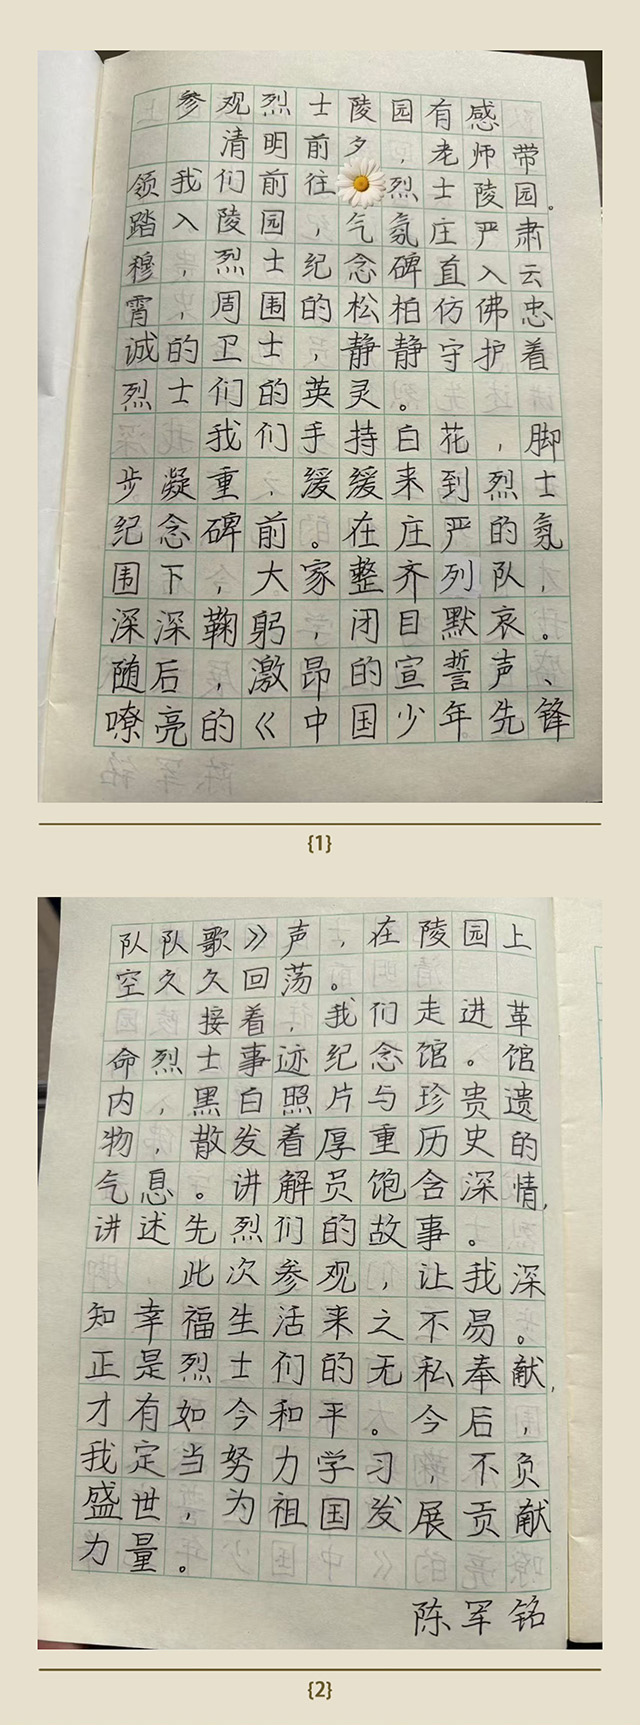 参观烈士陵园有感
清明前夕，老师带
领我们前往烈士陵园。
踏入陵园，气氛庄严肃
穆，烈士纪念碑直入云
霄，周围的松柏仿佛忠
诚的卫士，静静守护着
烈士们的英灵。
我们手持白花，脚
步凝重，缓缓来到烈士
纪念碑前。在庄严的氛
围下，大家整齐列队，
深深鞠躬，闭目默哀。
随后，激昂的宣誓声、
嘹亮的《中国少年先锋
{1}
队队歌》声，在陵园上
空久久回荡。
接着，我们走进革
命烈士事迹纪念馆。馆
内，黑白照片与珍贵遗
物，散发着厚重历史的
气息。讲解员饱含深情，
讲述先烈们的故事。
此次参观，让我深
知幸福生活来之不易。
正是烈士们的无私奉献，
才有如今和平。今后，
我定当努力学习，不负
盛世，为祖国发展贡献
力量。
陈军铭
{2}